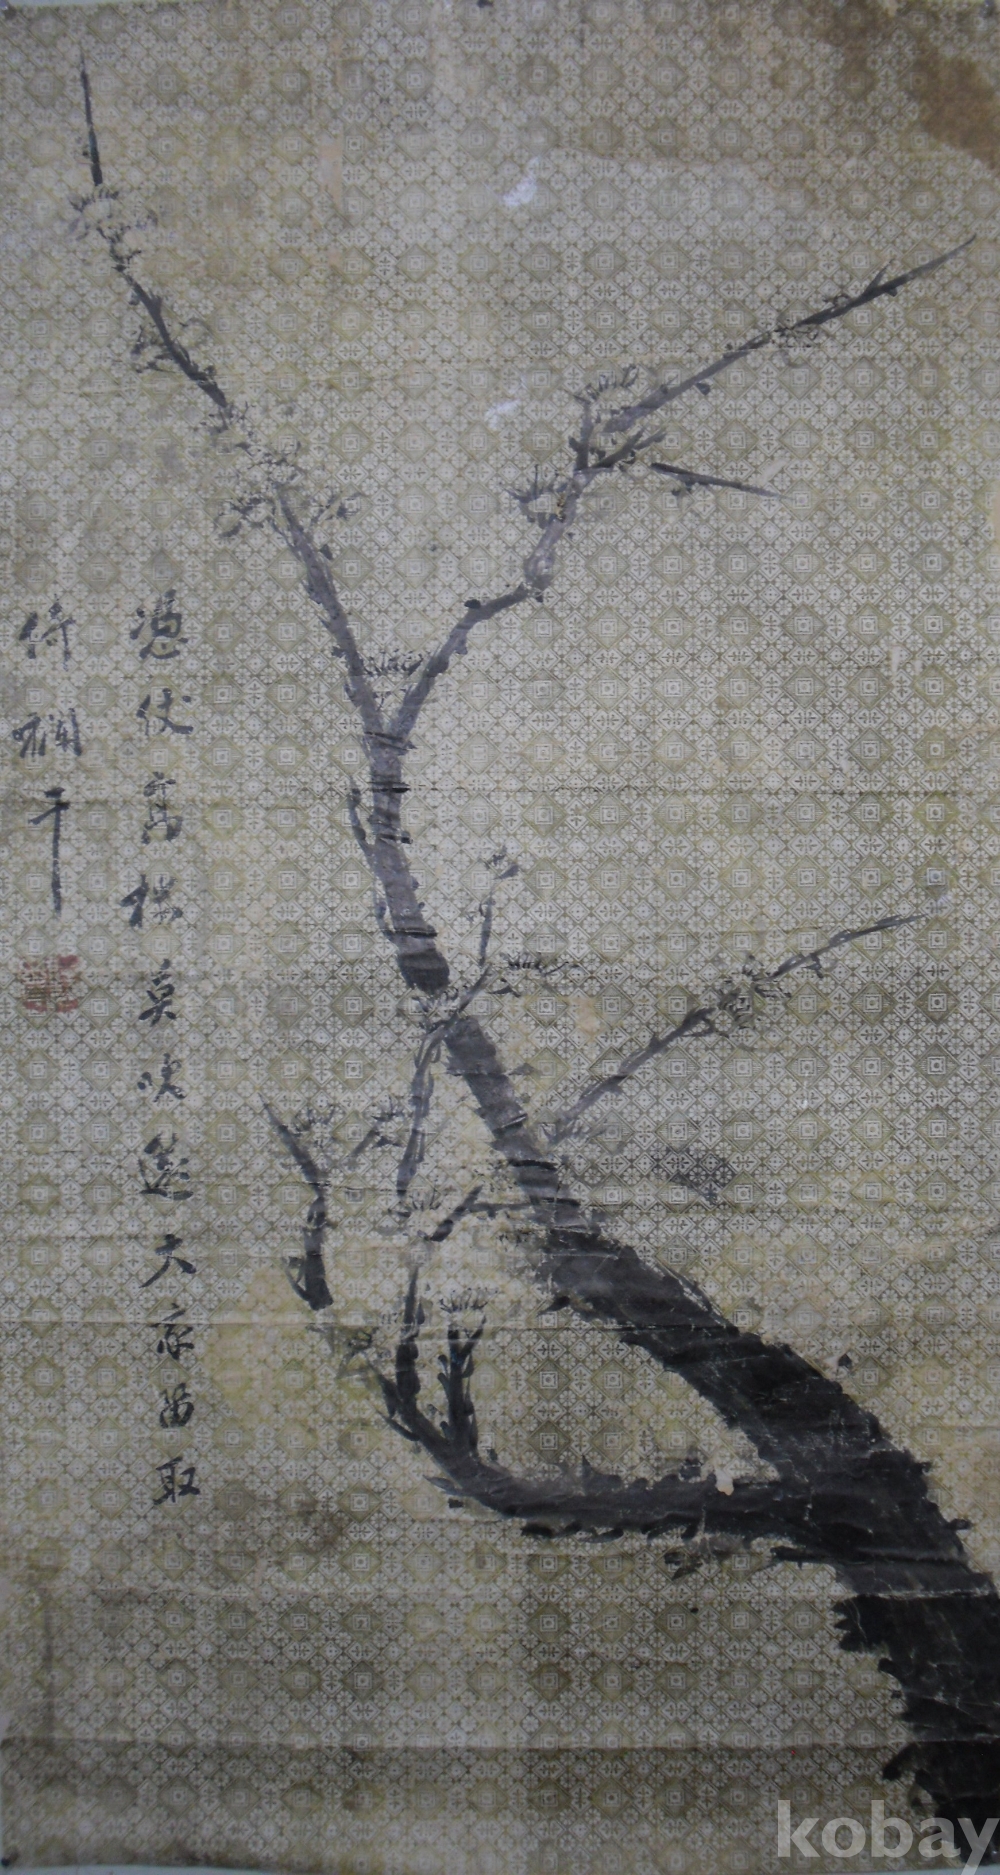 憑仗高樓莫吹篴大家留取
倚欄干
kobay